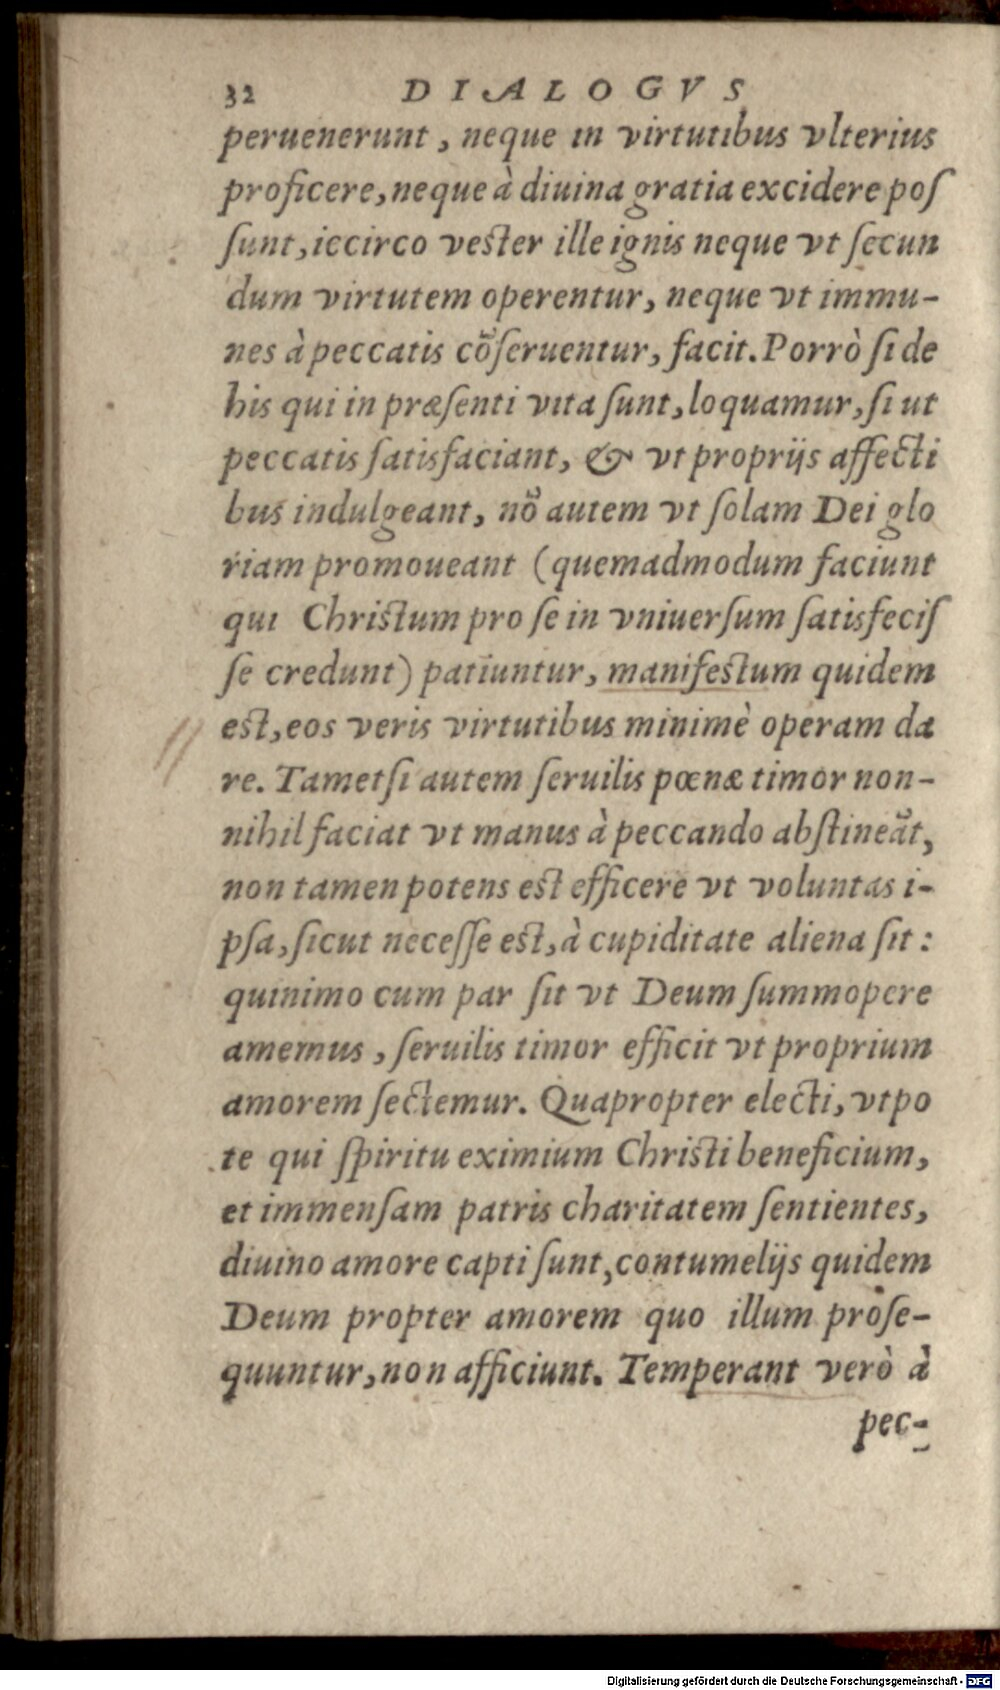 32 DIALOGVS
peruenerunt, neque in virtutibus vlterius
proficere, neque à diuina gratia excidere poſ
ſunt, iccirco veſter ille ignis neque vt ſecun
dum virtutem operentur, neque vt immu-
nes à peccatis cõſeruentur, facit. Porrò ſi de
his qui in præſenti vita ſunt, loquamur, ſi ut
peccatis ſatisfaciant, & vt proprijs affecti
bus indulgeant, nõ autem vt ſolam Dei glo
riam promoueant (quemadmodum faciunt
qui Chriſtum pro ſe in vniuerſum ſatisfeciſ
ſe credunt) patiuntur, manifeſtum quidem
eſt, eos veris virtutibus minimè operam da
re. Tametſi autem ſeruilis pœnæ timor non-
nihil faciat vt manus à peccando abſtineãt,
non tamen potens eſt efficere vt voluntas i-
pſa, ſicut neceſſe eſt, à cupiditate aliena ſit:
quinimo cum par ſit vt Deum ſummopere
amemus, ſeruilis timor efficit vt proprium
amorem ſectemur. Quapropter electi, vtpo
te qui ſpiritu eximium Chriſti beneficium,
et immenſam patris charitatem ſentientes,
diuino amore capti ſunt, contumelijs quidem
Deum propter amorem quo illum proſe-
quuntur, non afficiunt. Temperant verò à
pec-
Digitalisierung gefördert durch die Deutsche Forschungsgemeinschaft - DFG